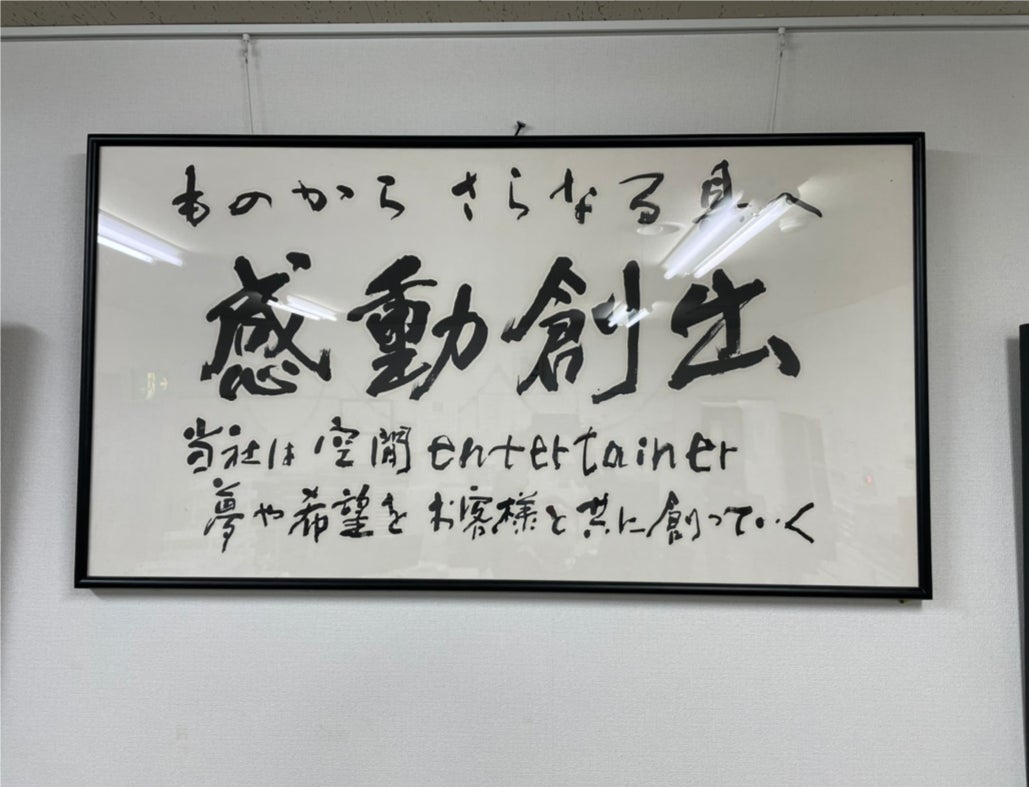 ものから さらなる具へ
感動創出
当社は空間entertainer
夢や希望をお客様と共に創っていく